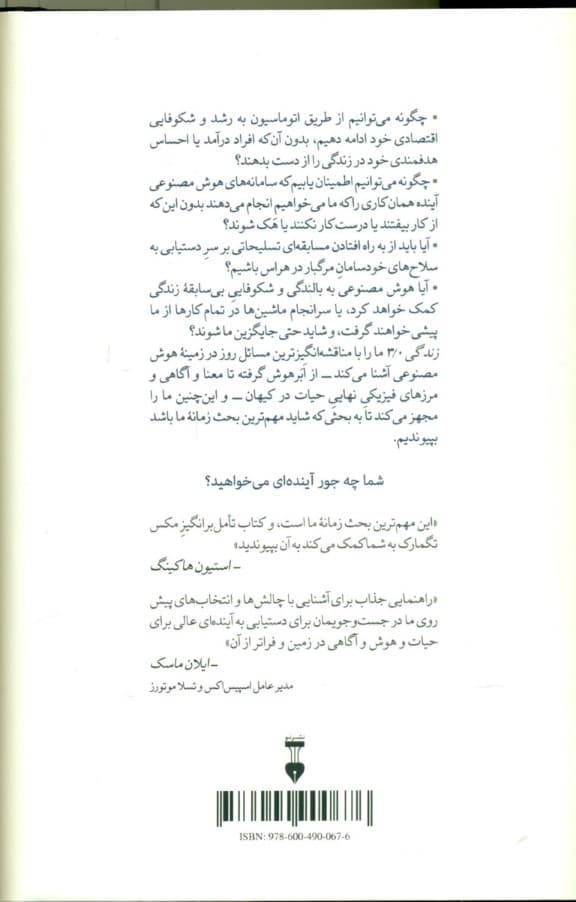 • چگونه می‌توانیم از طریق اتوماسیون به رشد و شکوفایی
اقتصادی خود ادامه دهیم، بدون آن‌که افراد درآمد یا احساس
هدفمندی خود در زندگی را از دست بدهند؟
• چگونه می‌توانیم اطمینان یابیم که سامانه‌های هوش مصنوعی
آینده همان کاری را که ما می‌خواهیم انجام می‌دهند بدون این‌که
از کار بیفتند یا درست کار نکنند یا هَک شوند؟
• آیا باید از به راه افتادن مسابقه‌ای تسلیحاتی بر سرِ دستیابی به
سلاح‌های خودسامانِ مرگبار در هراس باشیم؟
• آیا هوش مصنوعی به بالندگی و شکوفاییِ بی‌سابقهٔ زندگی
کمک خواهد کرد، یا سرانجام ماشین‌ها در تمام کارها از ما
پیشی خواهند گرفت، و شاید حتی جایگزین ما شوند؟
زندگی ۳/۰ ما را با مناقشه‌انگیزترین مسائل روز در زمینهٔ هوش
مصنوعی آشنا می‌کند ــ از اَبَرهوش گرفته تا معنا و آگاهی و
مرزهای فیزیکیِ نهاییِ حیات در کیهان ــ و این‌چنین ما را
مجهز می‌کند تا به بحثی که شاید مهم‌ترین بحث زمانهٔ ما باشد
بپیوندیم.
شما چه جور آینده‌ای می‌خواهید؟
«این مهم‌ترین بحث زمانهٔ ما است، و کتاب تأمل‌برانگیزِ مکس
تگمارک به شما کمک می‌کند به آن بپیوندید»
ــ استیون هاکینگ
«راهنمایی جذاب برای آشنایی با چالش‌ها و انتخاب‌های پیش
روی ما در جست‌وجویمان برای دستیابی به آینده‌ای عالی برای
حیات و هوش و آگاهی در زمین و فراتر از آن»
ــ ایلان ماسک
مدیر عامل اسپیس‌اکس و تسلا موتورز
نشر نو
ISBN: 978-600-490-067-6